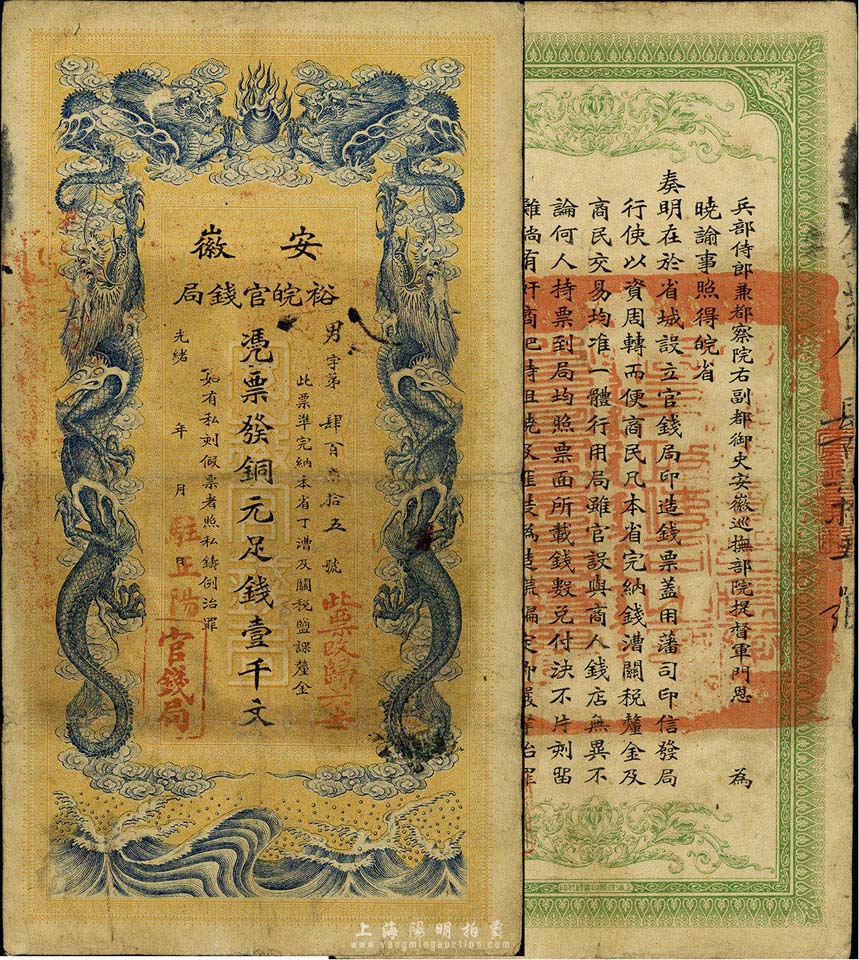 安徽
裕皖官錢局
男字第肆百叁拾五號
此票準完納本省丁漕及關稅鹽課釐金
憑票發銅元足錢壹千文
如有私刻假票者照私鑄例治罪
光緒 年 月 日
此票改歸六安
駐正陽
官錢局
兵部侍郎兼都察院右副都御史安徽巡撫部院提督軍門恩 為
曉諭事照得皖省
奏明在於省城設立官錢局印造錢票蓋用藩司印信發局
行使以資周轉而便商民凡本省完納錢漕關稅釐金及
商民交易均准一體行用局雖官設與商人錢店無異不
論何人持票到局均照票面所載錢數兌付決不片刻留
難倘有奸商把持阻撓
上海陽明拍賣
www.yangmingauction.com